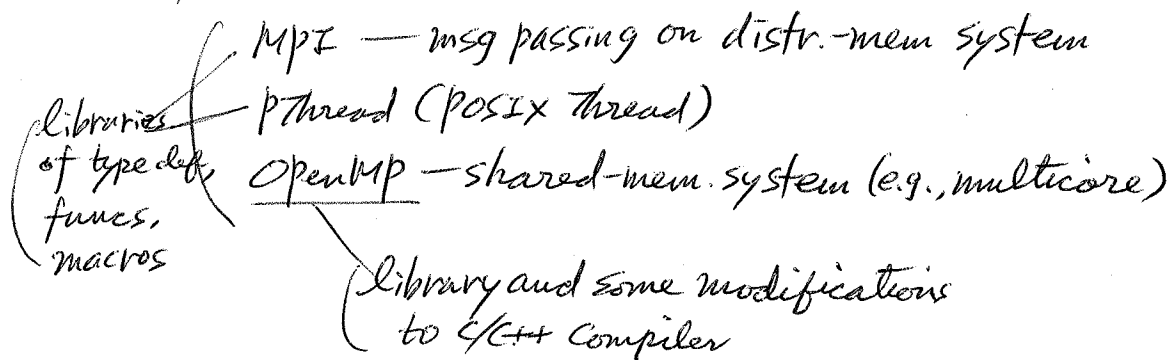 MPI — msg passing on distr.-mem system
PThread (POSIX Thread)
OpenMP — shared-mem. system (e.g., multicore)
libraries
of type def,
funcs,
macros
library and some modifications
to C/C++ compiler